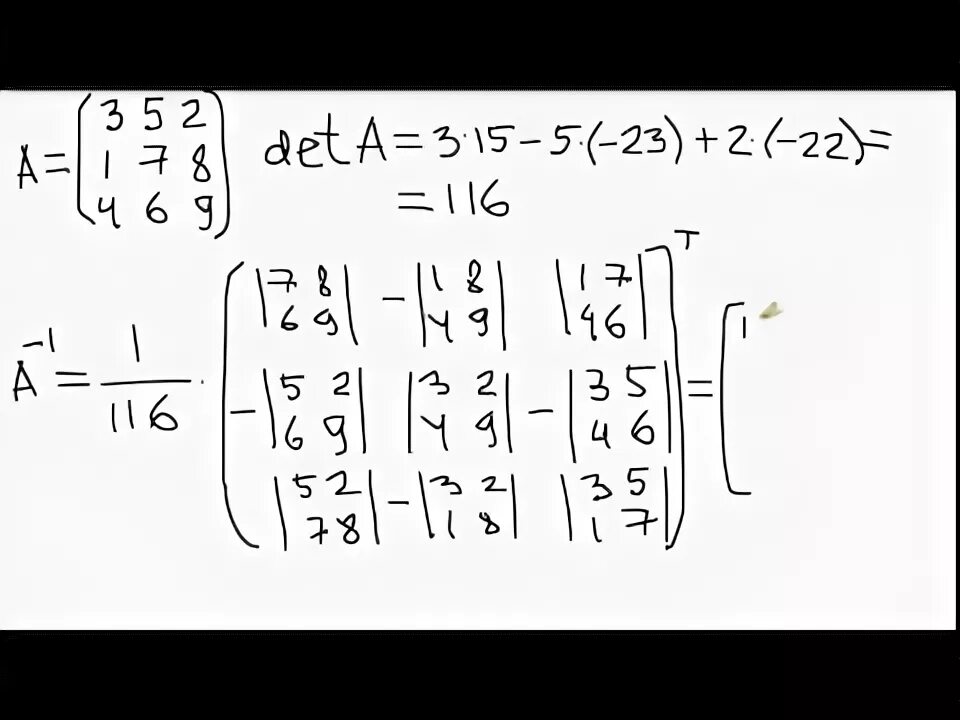 A = (3 5 2
1 7 8
4 6 9)
det A = 3·15 − 5·(−23) + 2·(−22) =
= 116
A⁻¹ = 1/116 · (|7 8; 6 9| −|1 8; 4 9| |1 7; 4 6|
−|5 2; 6 9| |3 2; 4 9| −|3 5; 4 6|
|5 2; 7 8| −|3 2; 1 8| |3 5; 1 7|)ᵀ = [1